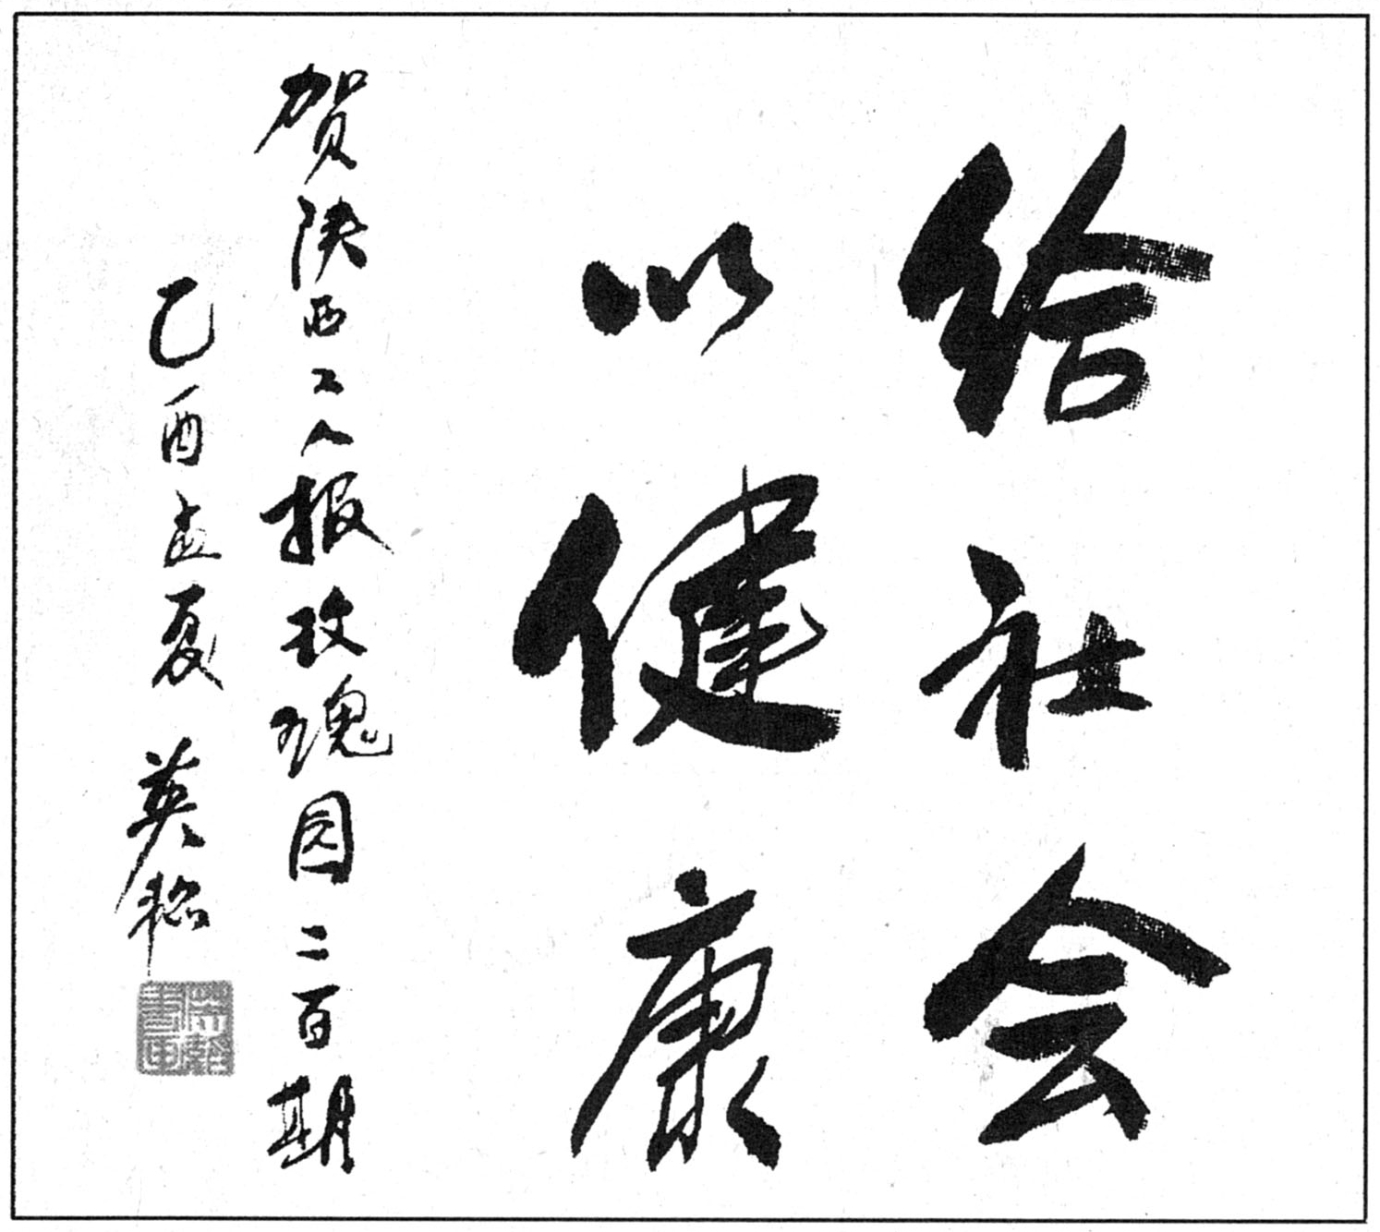 给社会
以健康
贺陕西工人报玫瑰园二百期
乙酉孟夏 英